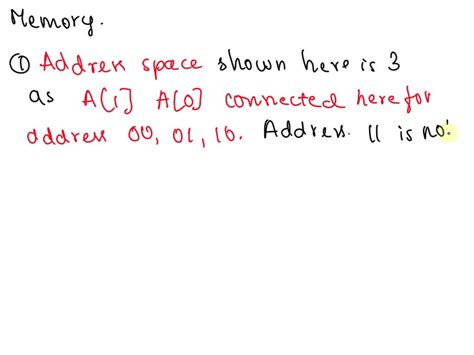 Memory.
① Address space shown here is 3
as A[1] A[0] connected here for
address 00, 01, 10. Address 11 is not